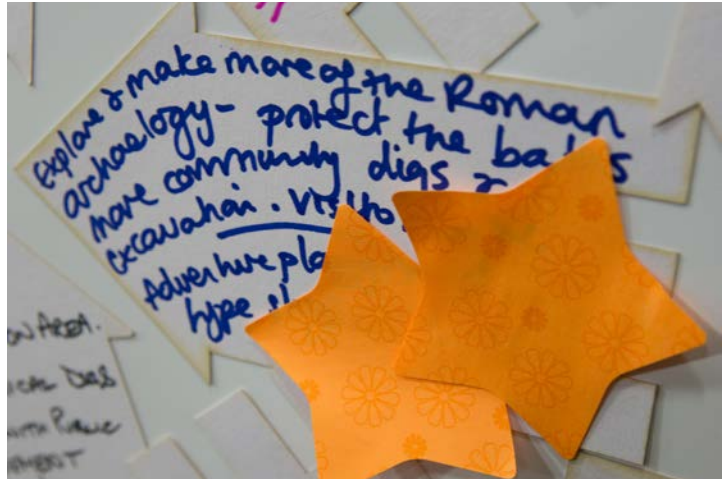 Explore & make more of the Roman
archaelogy - protect the baths
more community digs &
excavation. visito
Adventure pla
type
ON AREA.
ICAL DIGS
WITH PUBLIC